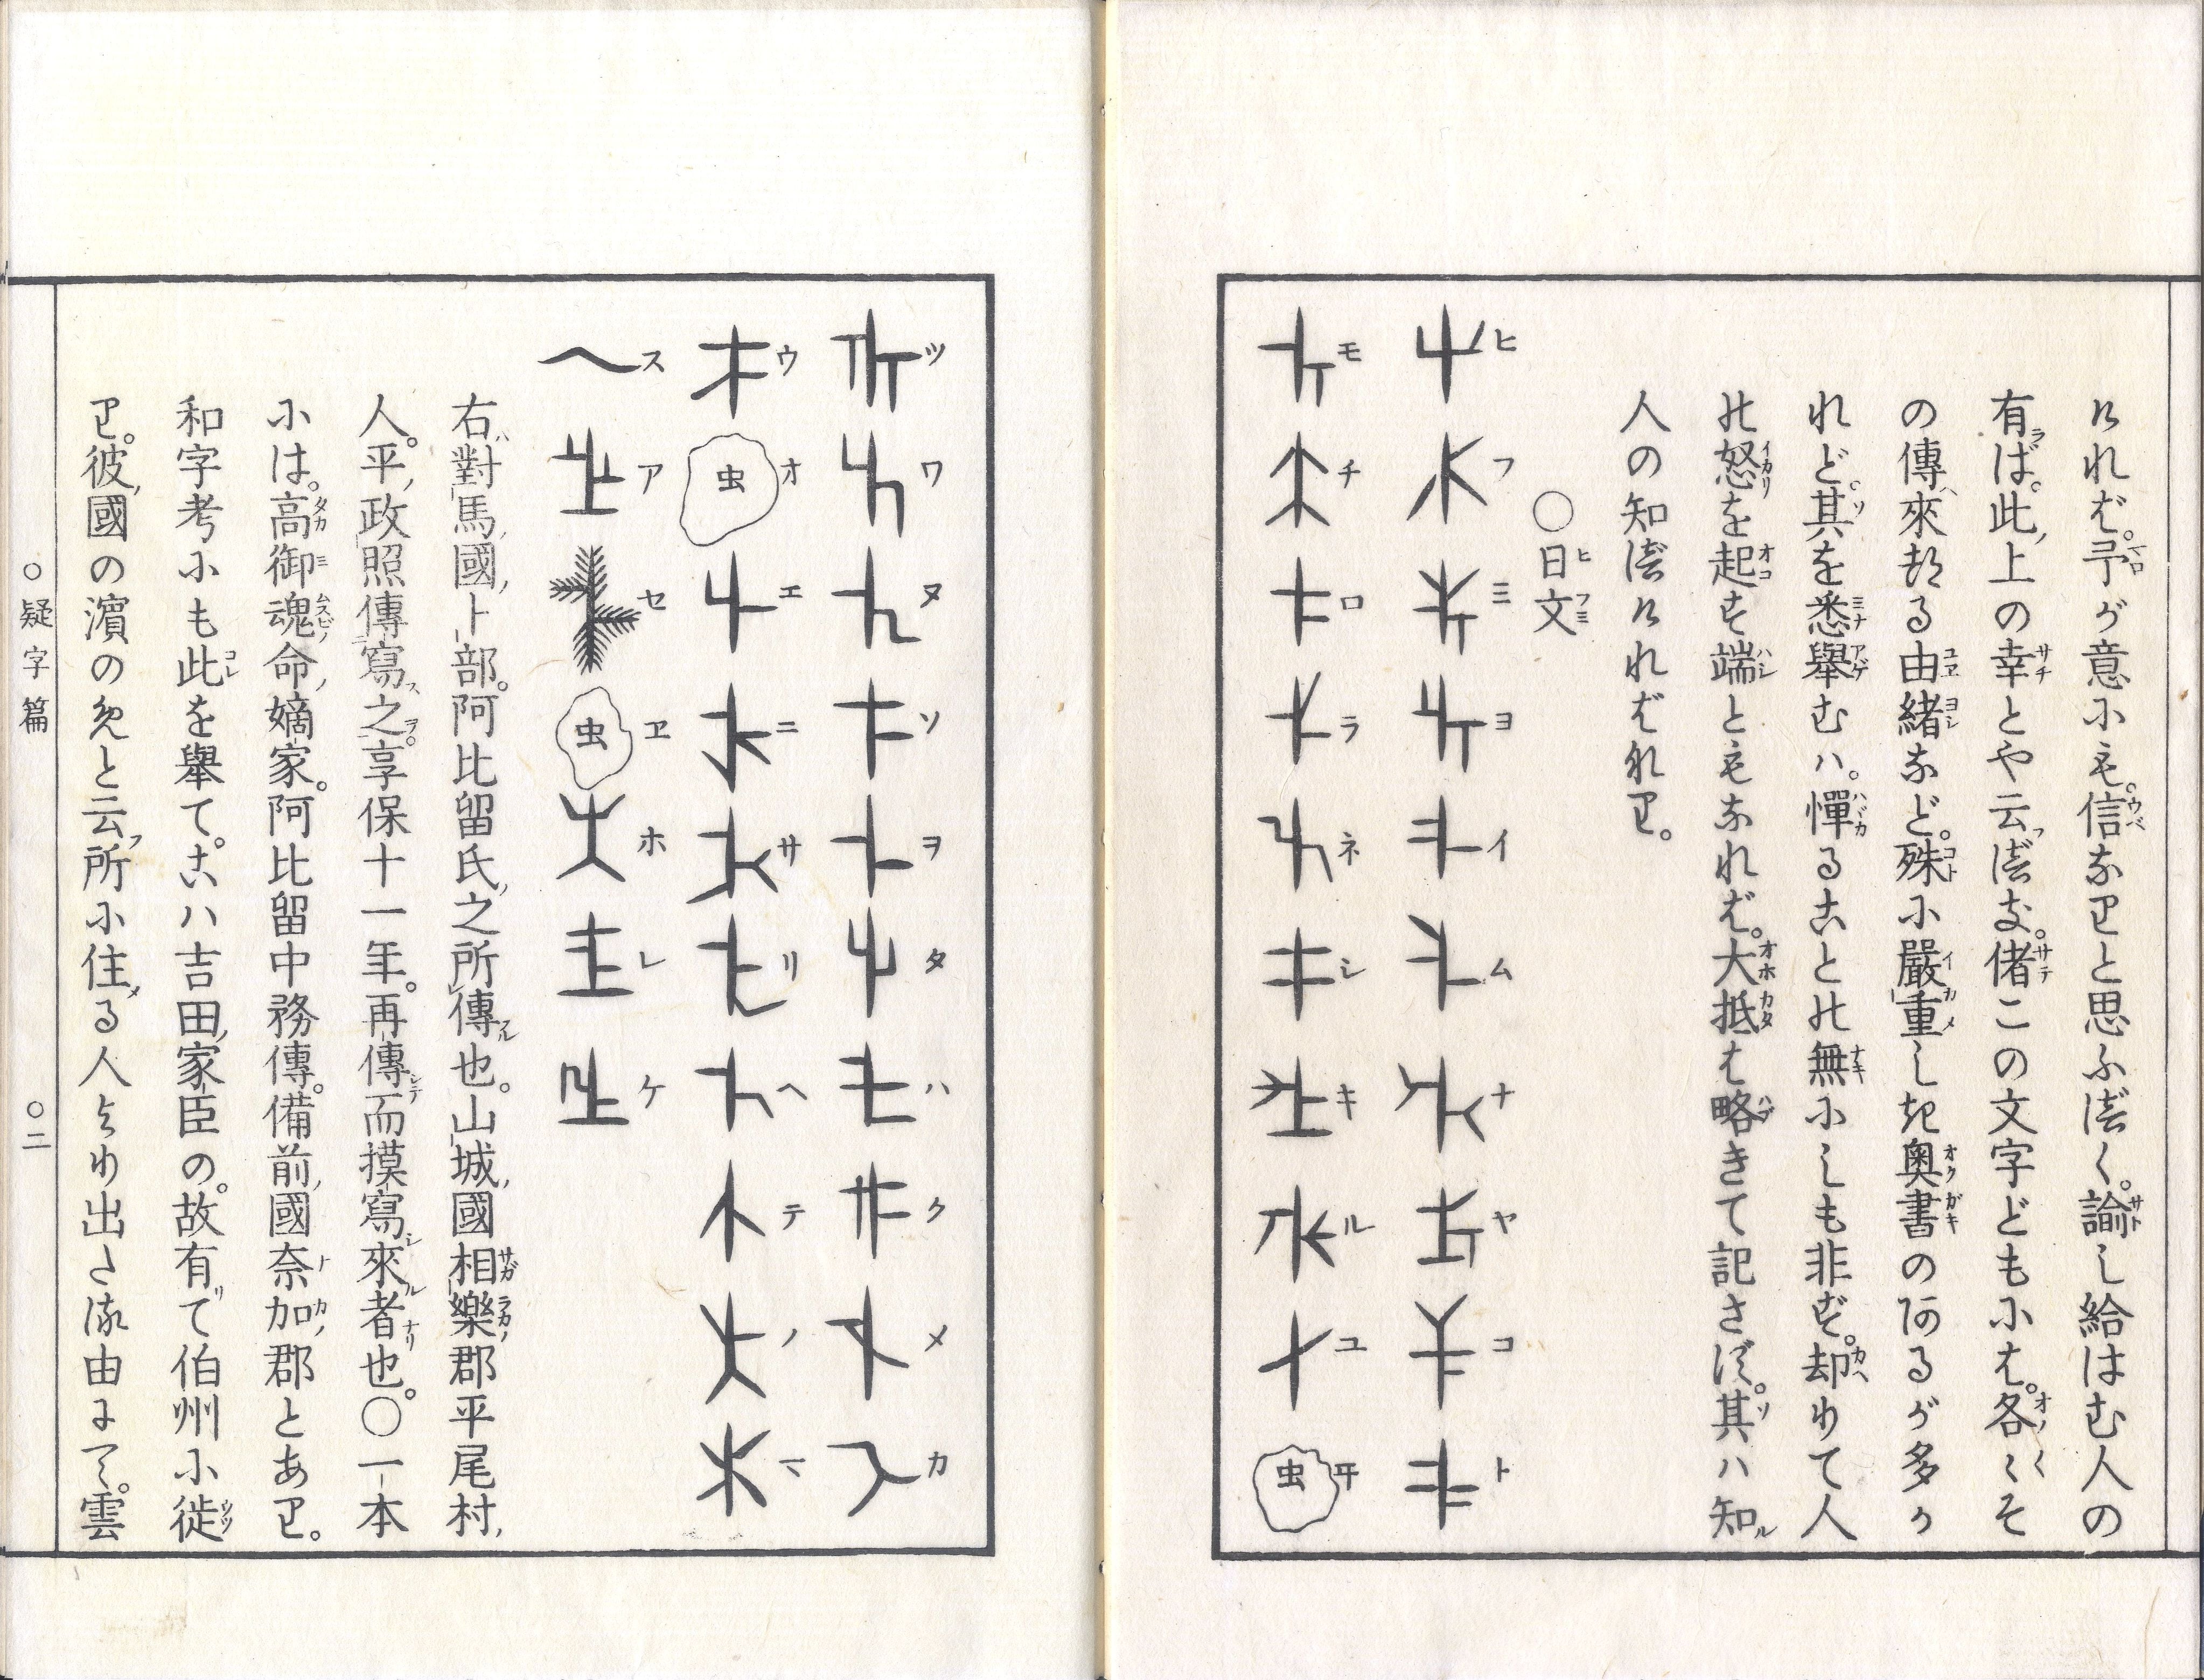 けれバ。予が意にも。信なりと思ふばく。諭し給はむ人の
有ば。此上の幸とや云べき。偖この文字どもには。各〻その
傳來れる由緒など。殊に嚴重しき奥書のあるが多か
れど。其を悉擧むハ。憚ることの無にしも非ず。却りて人
の怒を起す端ともなれバ。大抵は略きて記さず。其ハ知
人の知べけれバなり。
〇日文
ヒ フ ミ ヨ イ ム ナ ヤ コ ト
モ チ ロ ラ ネ シ キ ル ユ ヰ 虫
ツ ワ ヌ ソ ヲ タ ハ ク メ カ
ウ オ 虫 エ ニ サ リ ヘ テ ノ マ
ス ア セ ヱ 虫 ホ レ ケ
右對馬國卜部。阿比留氏之所傳也。山城國相樂郡平尾村
人。平政照傳寫之享保十一年。再傳而摸寫來者也。〇一本
には。高御魂命嫡家。阿比留中務傳。備前國奈加郡とあり。
和字考にも此を擧て。こハ吉田家臣の。故有て伯州に徙
り。彼國の濱のめと云所に住る人より出たる由にて。雲
〇疑字篇 〇二